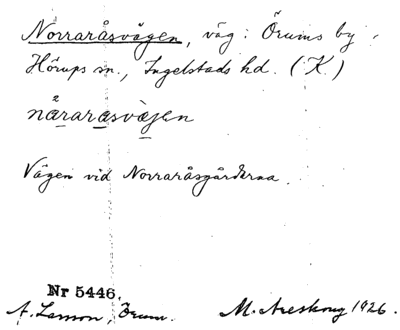 Norraråsvägen, väg i Örums by i
Hörups sn., Ingelstads hd. (K.)
nårarasvæjen
Vägen vid Norraråsgårdarna.
Nr 5446.
A. Larsson, Örum. M. Areskoug 1926.